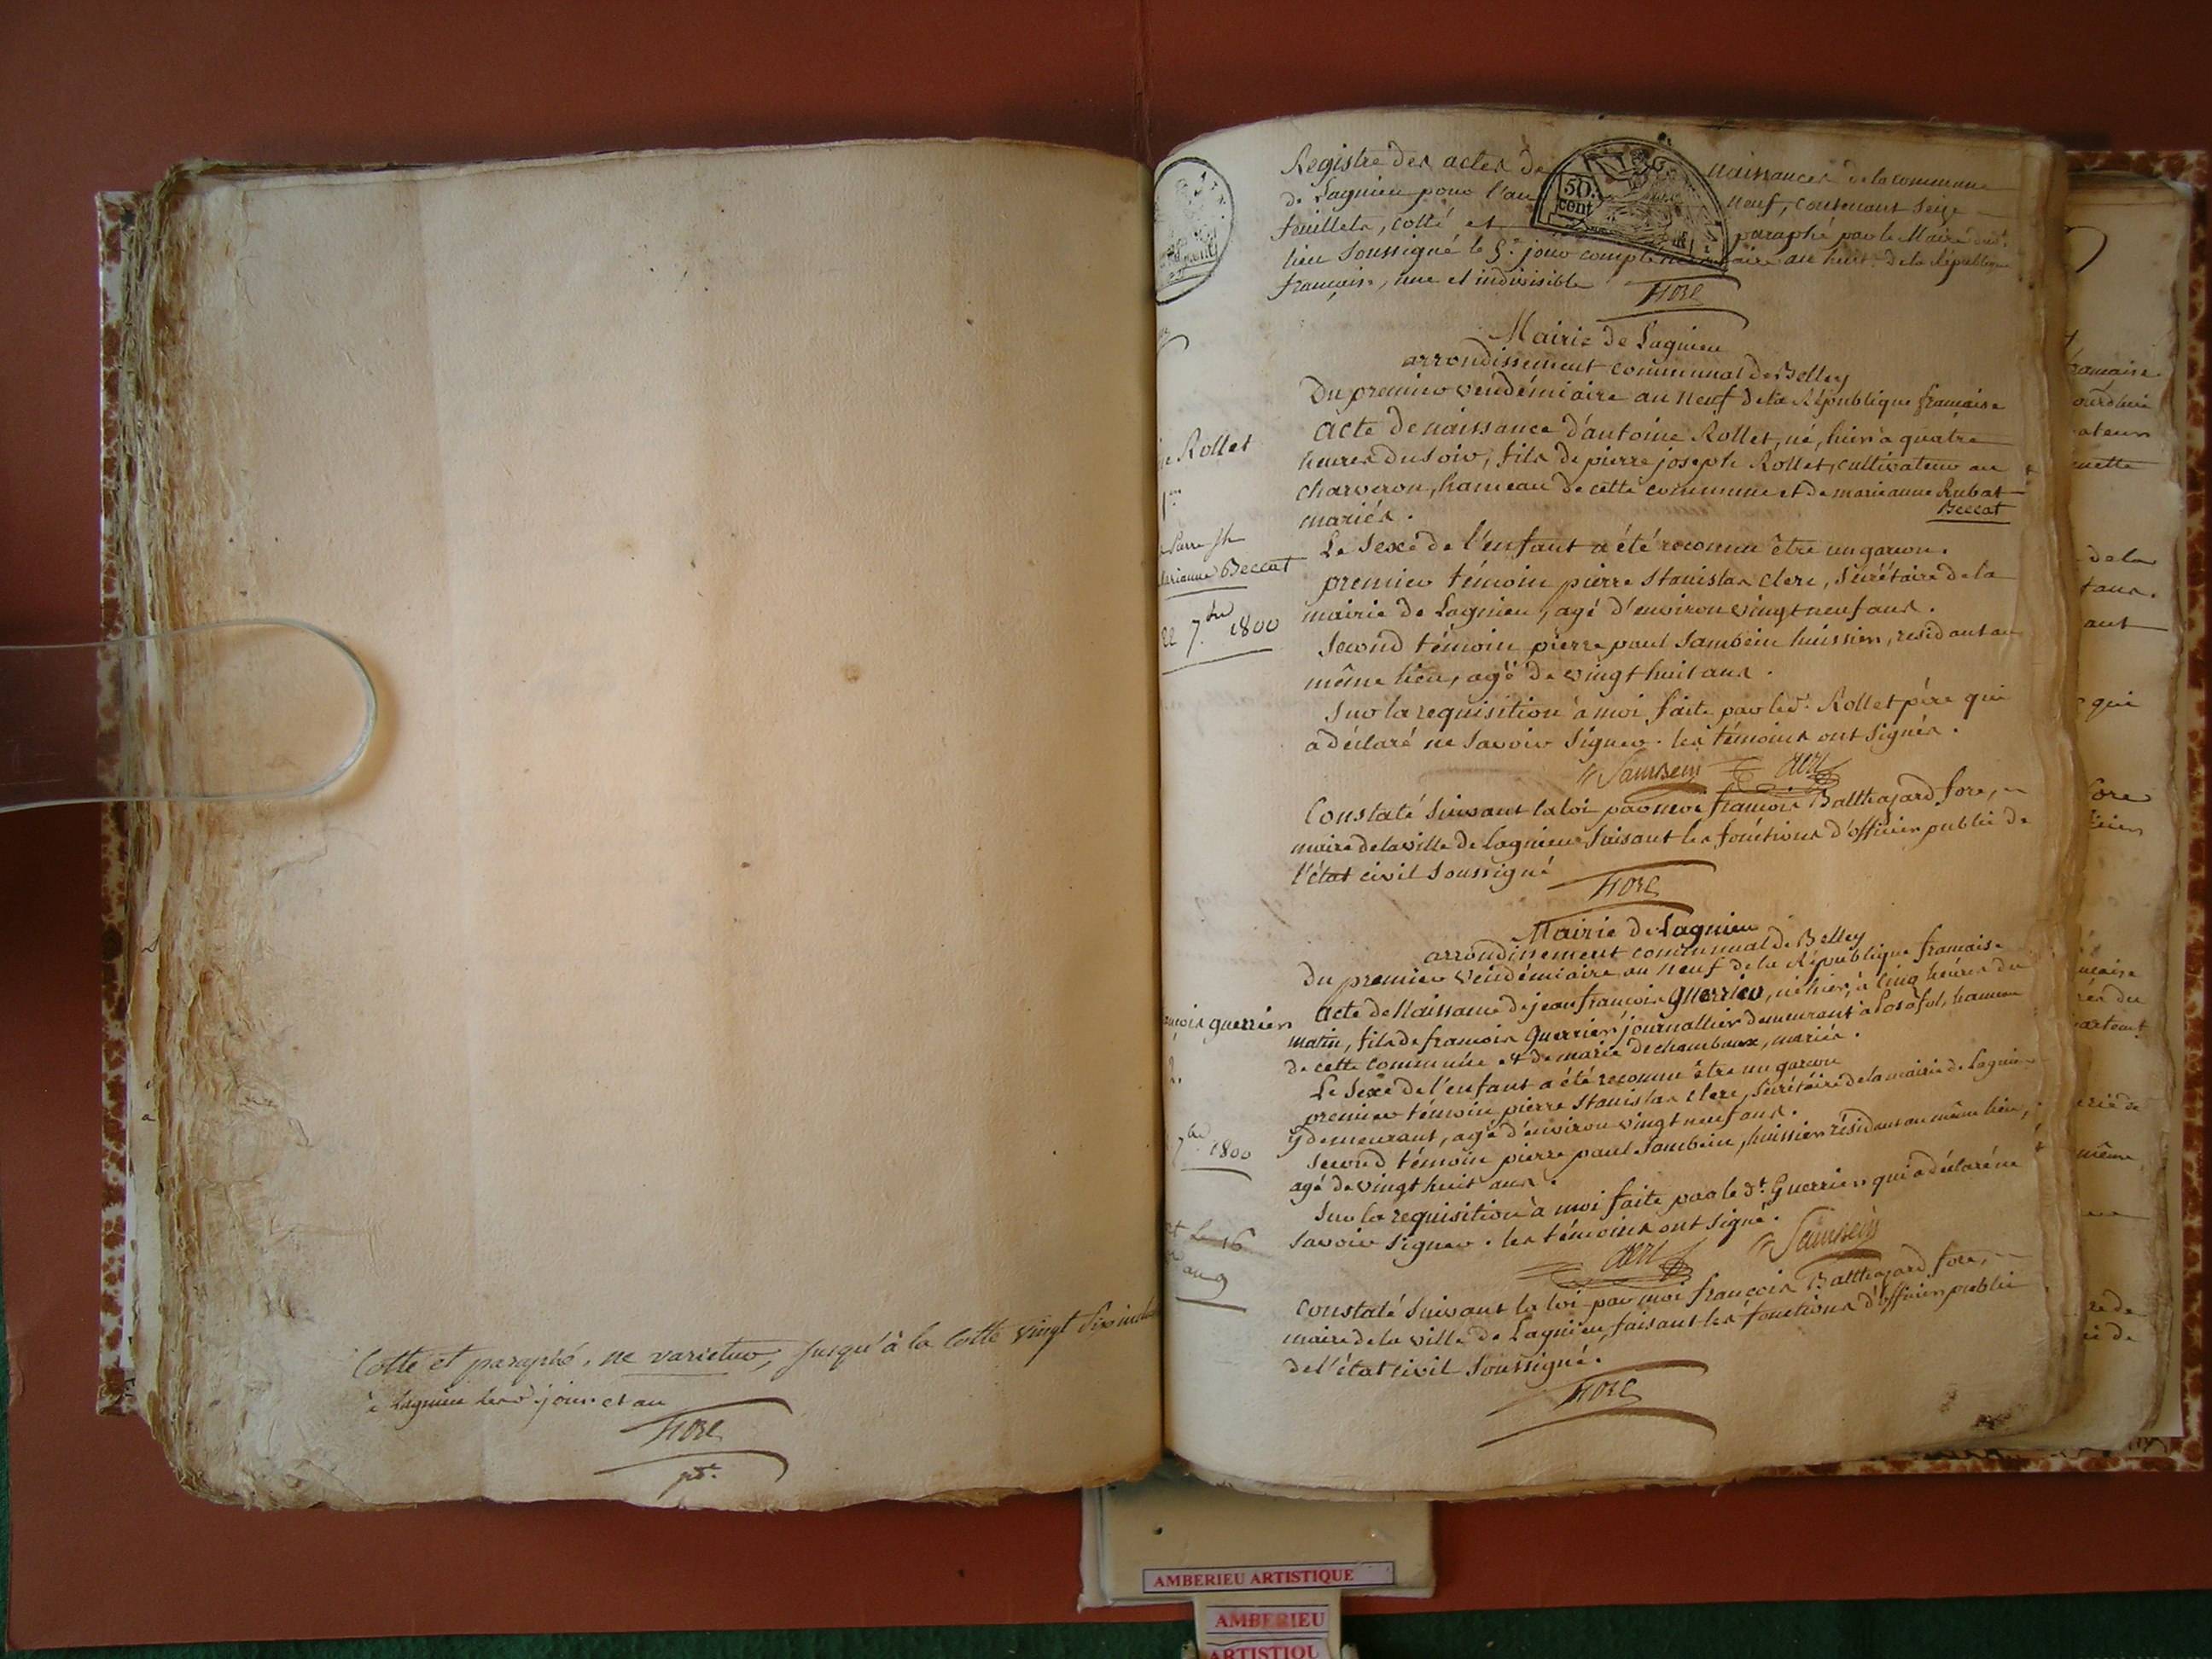 Cotté et paraphé, ne varietur, jusqu'à la Cotte vingt six
à Lagnieu les d. jour et an
Fore
pdt.
Registre des actes de naissances de la commune
de Lagnieu pour l'an neuf, contenant seize
feuillets, cotté et paraphé par le Maire dudt.
lieu soussigné le 5e. jour complémentaire an huit de la République
française, une et indivisible
Fore
50.
cent
Mairie de Lagnieu
arrondissement communal de Belley
Du premier vendémiaire an neuf de la République française
Acte de naissance d'antoine Rollet, né, hier à quatre
heures du soir, fils de pierre joseph Rollet, cultivateur au
charveron, hameau de cette commune et de marieanne Rubat
Beccat
mariés.
Le sexe de l'enfant a été reconnu être un garçon.
premier témoin pierre Stanislas Clerc, sécrétaire de la
mairie de Lagnieu, agé d'environ vingt neuf ans.
second témoin pierre paul Sambein huissier, residant au
même lieu, agé de vingt huit ans.
Sur la requisition à moi faite par led. Rollet père qui
a déclaré ne savoir signer. les témoins ont signés.
Sambein Clerc
Constaté suivant la loi par moi françois Balthazard fore,
maire de la ville de Lagnieu faisant les fonctions d'officier public de
l'état civil soussigné
Fore
Rollet
1er
Pierre Jh
Marianne Beccat
22 7.bre 1800
Mairie de Lagnieu
arrondissement communal de Belley
Du premier vendémiaire an neuf de la République française
Acte de Naissance de jean françois Guerrier, né hier, à cinq heures du
matin, fils de françois Guerrier journallier demeurant à Posafol, hameau
de cette commune et de marie dechambaux, mariés.
Le sexe de l'enfant a été reconnu être un garçon
premier témoin pierre Stanislas Clerc, sécrétaire de la mairie de Lagnieu
y demeurant, agé d'environ vingt neuf ans.
second témoin pierre paul Sambein, huissier résidant au même lieu,
agé de vingt huit ans.
Sur la requisition à moi faite par le dt. Guerrier qui a déclaré ne
savoir signer. les témoins ont signé.
Clerc Sambein
Constaté suivant la loi par moi françois Balthazard fore,
maire de la ville de Lagnieu, faisant les fonctions d'officier public
de l'état civil soussigné.
Fore
guerrier
2.
7bre 1800
le 16
an 9
AMBERIEU ARTISTIQUE
AMBERIEU
ARTISTIQU